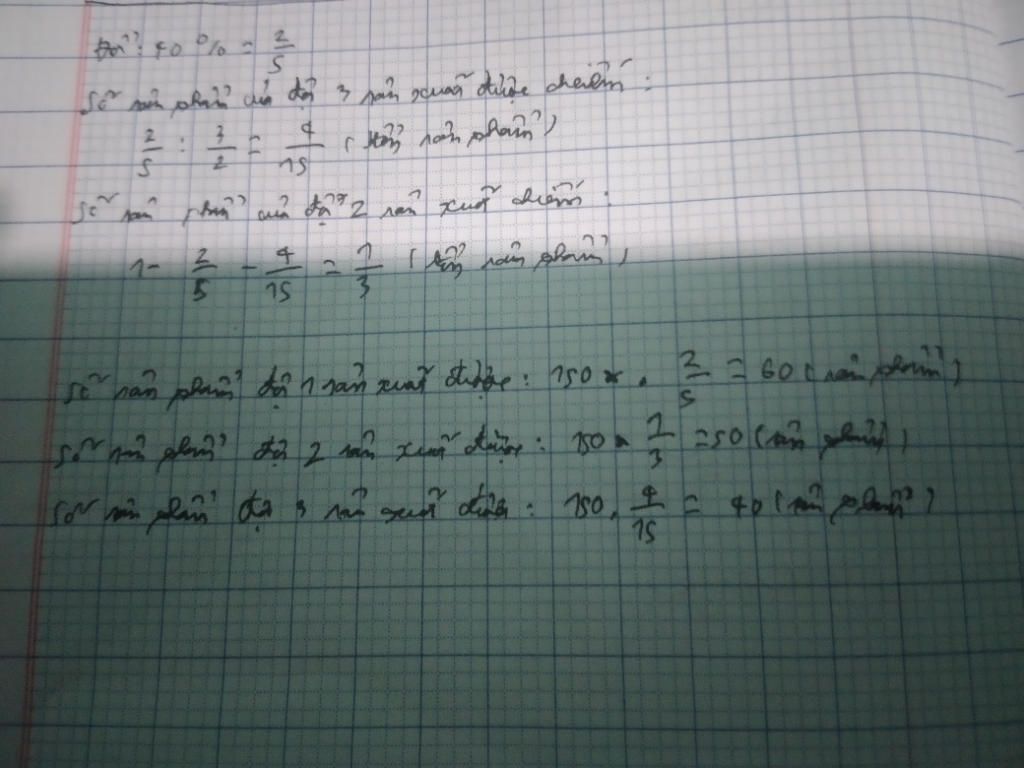 Đổi: 40% = 2/5
Số sản phẩm của đội 3 sản xuất được chiếm:
2/5 : 3/2 = 4/15 (tổng sản phẩm)
Số sản phẩm của đội 2 sản xuất chiếm:
1 - 2/5 - 4/15 = 1/3 (tổng sản phẩm)
Số sản phẩm đội 1 sản xuất được: 150 . 2/5 = 60 (sản phẩm)
Số sản phẩm đội 2 sản xuất được: 150 . 1/3 = 50 (sản phẩm)
Số sản phẩm đội 3 sản xuất được: 150 . 4/15 = 40 (sản phẩm)